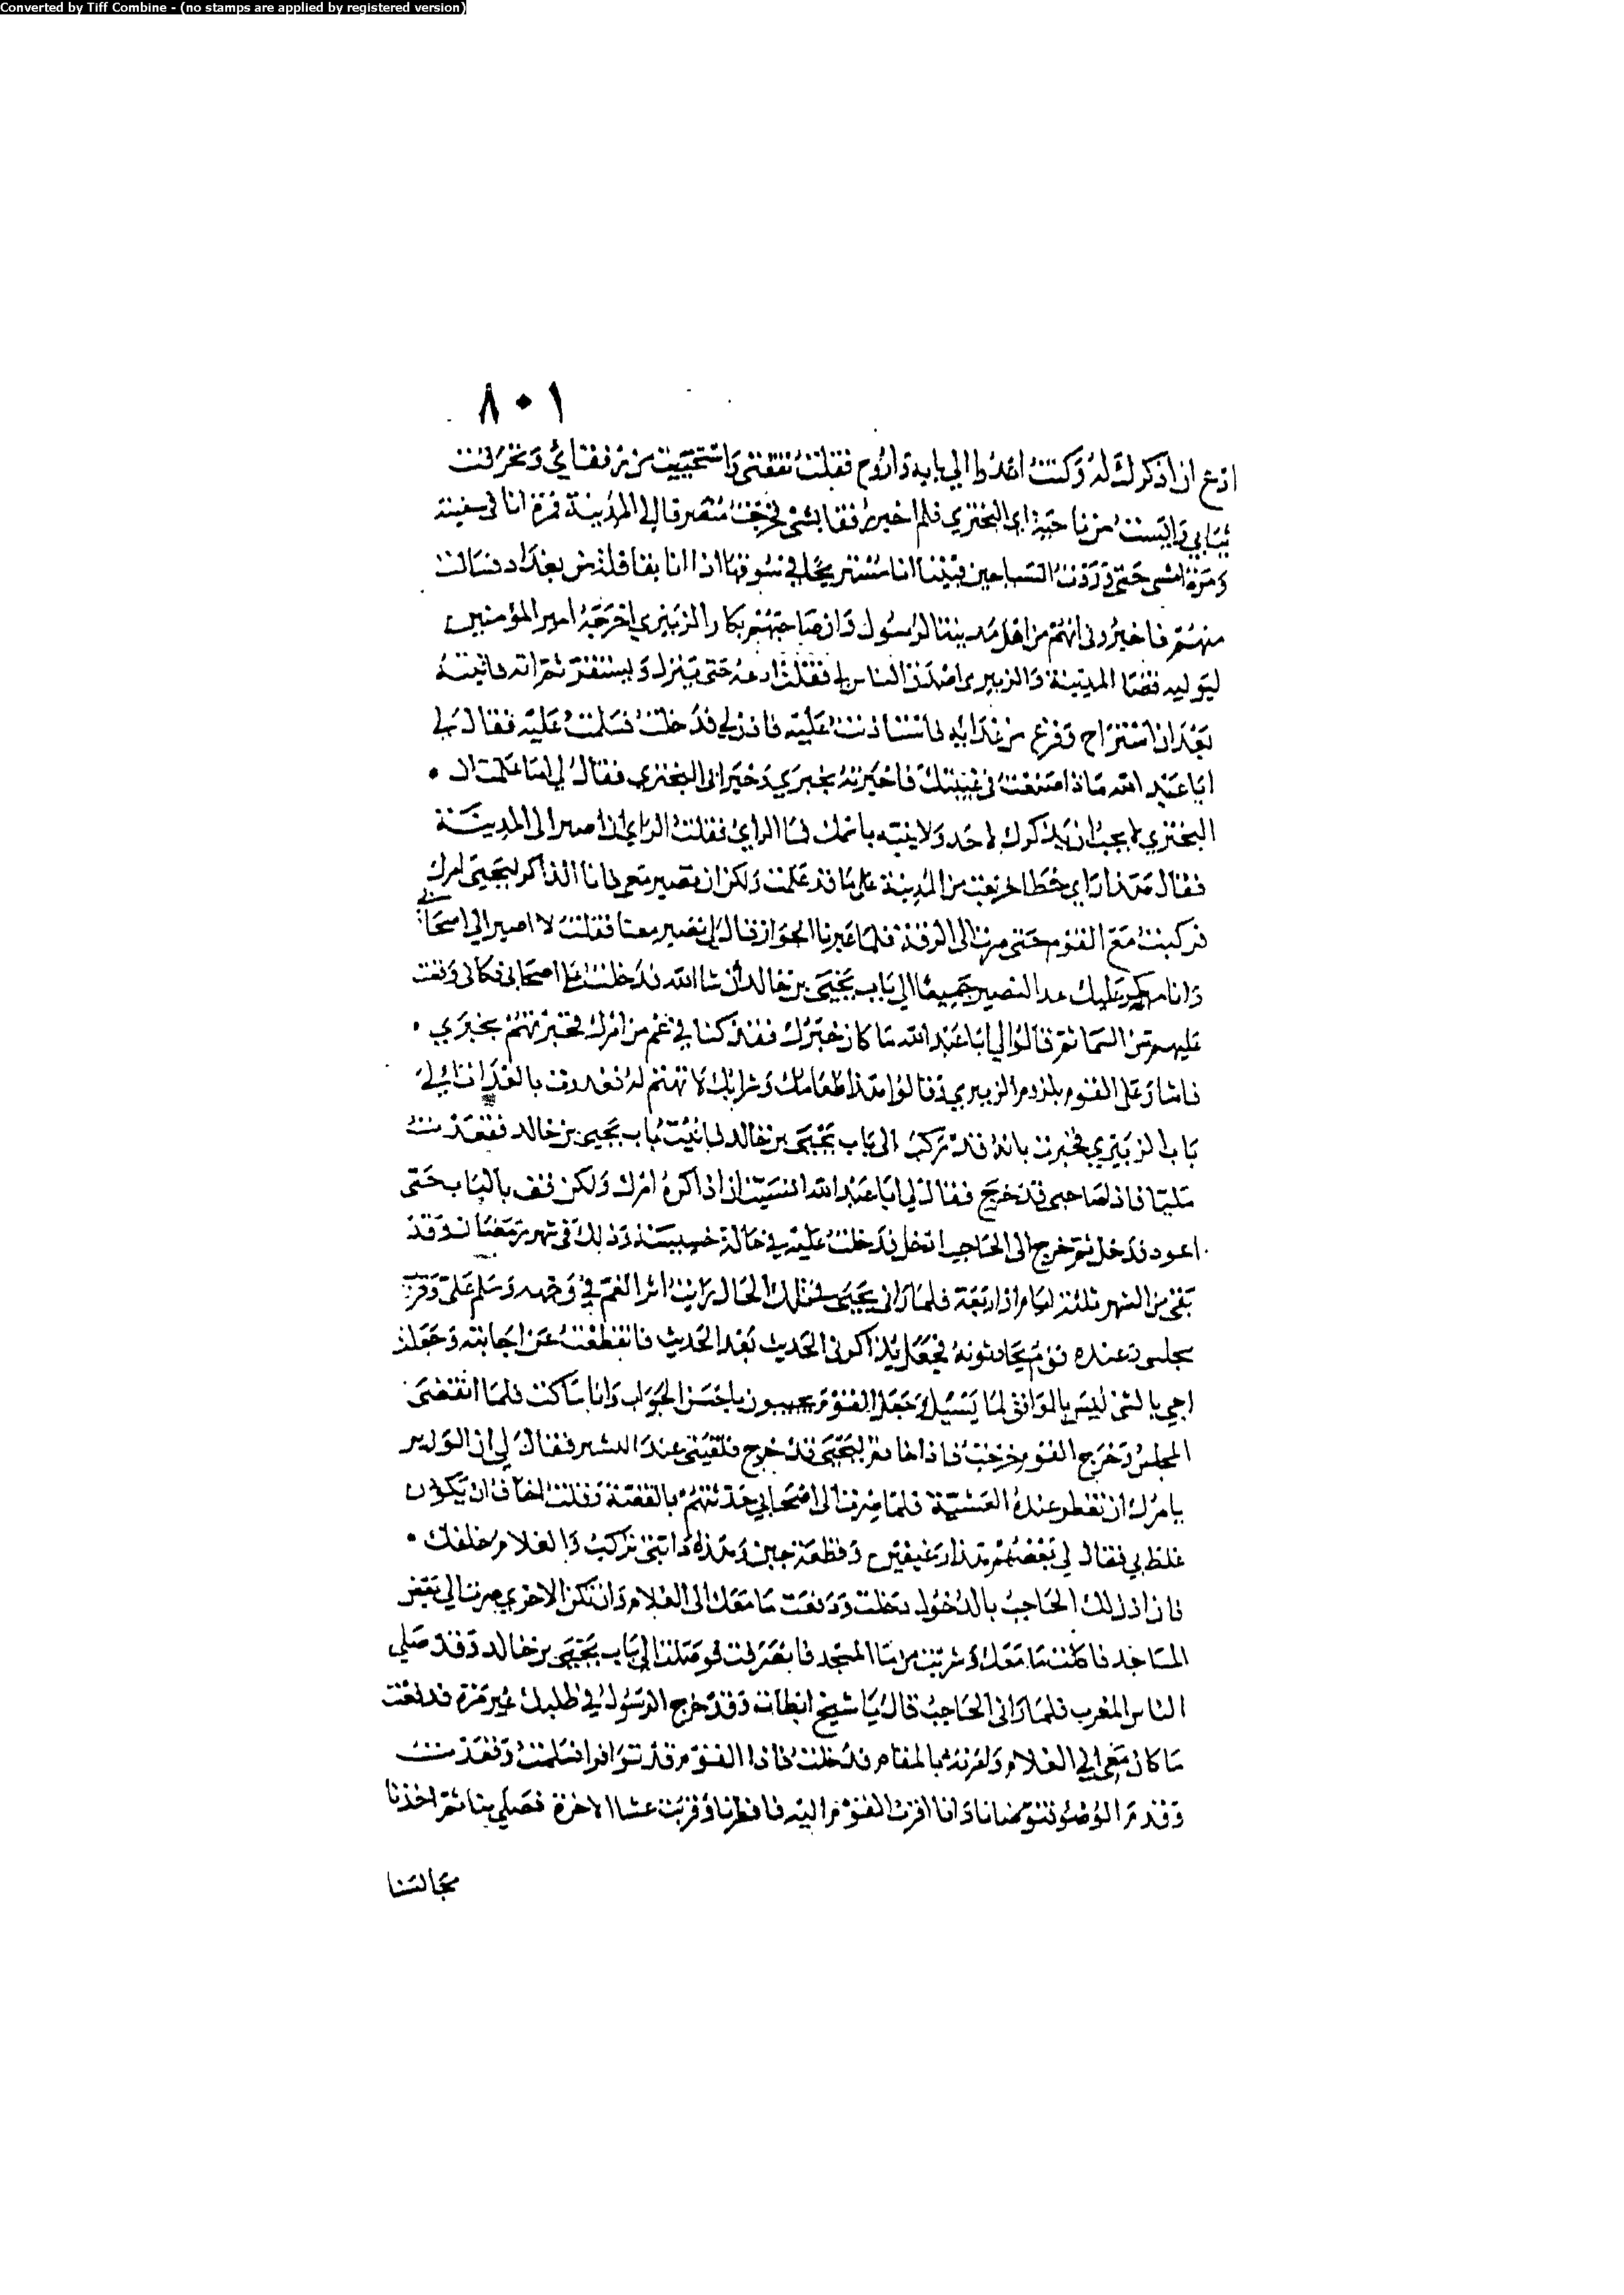 Converted by Tiff Combine - (no stamps are applied by registered version)
٨٠١
ادع ان اذكرك له وكنت اغدوا الي بابه واروح فقلت نفقتي واستحييت من رفقائي وتخرقت
ثيابي وايست من ناحية ابي البختري فلم اخبر رفقا بشي فخرجت منصرفا الي المدينة فمرة انا في سفينة
ومرة امشي حتى وردت السيلحين فبينا انا مستريح في سوقها اذا انا بقافلة من بغداد فسالت
منهم فاخبروني انهم من اهل مدينة الرسول وان صاحبهم بكار الزبيري اخرجه امير المؤمنين
ليوليه قضا المدينة والزبيري اصدق الناس لي فقلت ادعه حتى ينزل ويستقر ثم اته فاتيته
بعد ان استراح وفرغ من غدايه فاستاذنت عليه فاذن لي فدخلت فسلمت عليه فقال لي
ابا عبد الله ماذا صنعت في غيبتك فاخبرته بخبري وخبر ابي البختري فقال لي اما علمت ان
البختري لا يحب ان يذكرك لاحد ولا ينبه باسمك فما الراي فقلت الراي ان اصير الى المدينة
فقال هذا راي خطا خرجت من المدينة على ما قد علمت ولكن ان تصير معي فانا الذاكر ليحيى امرك
فركبت مع القوم حتى صرت الى الرقة فلما عبرنا الجواز قال لي تصير معنا فقلت لا اصير الي اصحابي
وانا مبكر عليك غدا لنصير جميعا الي باب يحيى بن خالد ان شا الله فدخلت على اصحابي فكاني وقعت
عليهم من السما ثم قالوا لي ابا عبد الله ما كان خبرك فقد كنا في غم من امرك فخبرتهم بخبري
فاشار علي القوم بلزوم الزبيري وقالوا هذا طعامك وشرابك لا تهتم له فغدوت بالغداة الي
باب الزبيري فخبرت بانه قد ركب الى باب يحيى بن خالد فاتيت باب يحيى بن خالد فقعدت
مليا فاذا صاحبي قد خرج فقال لي ابا عبد الله انسيت ان اذاكره امرك ولكن قف بالباب حتى
اعود فدخل ثم خرج الى الحاجب ادخل فدخلت عليه في حالة خسيسة وذلك في شهر رمضان وقد
بقي من الشهر ثلثة ايام او اربعة فلما راني يحيى في تلك الحال رايت اثر الغم في وجهه وسلم علي وقرب
مجلسي وعنده قوم يحادثونه فجعل يذاكرني الحديث بعد الحديث فانقطعت عن اجابته وجعلت
اجي بالشي ليس بالموافق لما يسيل وجعل القوم يجيبون باحسن الجواب وانا ساكت فلما انقضى
المجلس وخرج القوم خرجت فاذا خادم ليحيى قد خرج فلقيني عند الستر فقال لي ان الوزير
يامرك ان تفطر عنده العشية فلما صرت الى اصحابي حدثتهم بالقصة وقلت اخاف ان يكون
غلط بي فقال لي بعضهم هذا رغيفين وقطعة جبن وهذه دابتي تركب والغلام خلفك
فان اذن لك الحاجب بالدخول دخلت ودفعت ما معك الى الغلام وان تكن الاخرى صرت الي بعض
المساجد فاكلت ما معك وشربت من ما المسجد فانصرفت فوصلت الي باب يحيى بن خالد وقد صلى
الناس المغرب فلما راني الحاجب قال يا شيخ ابطات وقد خرج الرسول في طلبك غير مرة فدفعت
ما كان معي الي الغلام وامرته بالمقام فدخلت فاذا القوم قد توافوا فسلمت وقعدت
وقدم الوضو فتوضانا وانا اقرب القوم اليه فافطرنا وقربت عشا الاخرة فصلى بنا ثم اخذنا
مجالسنا